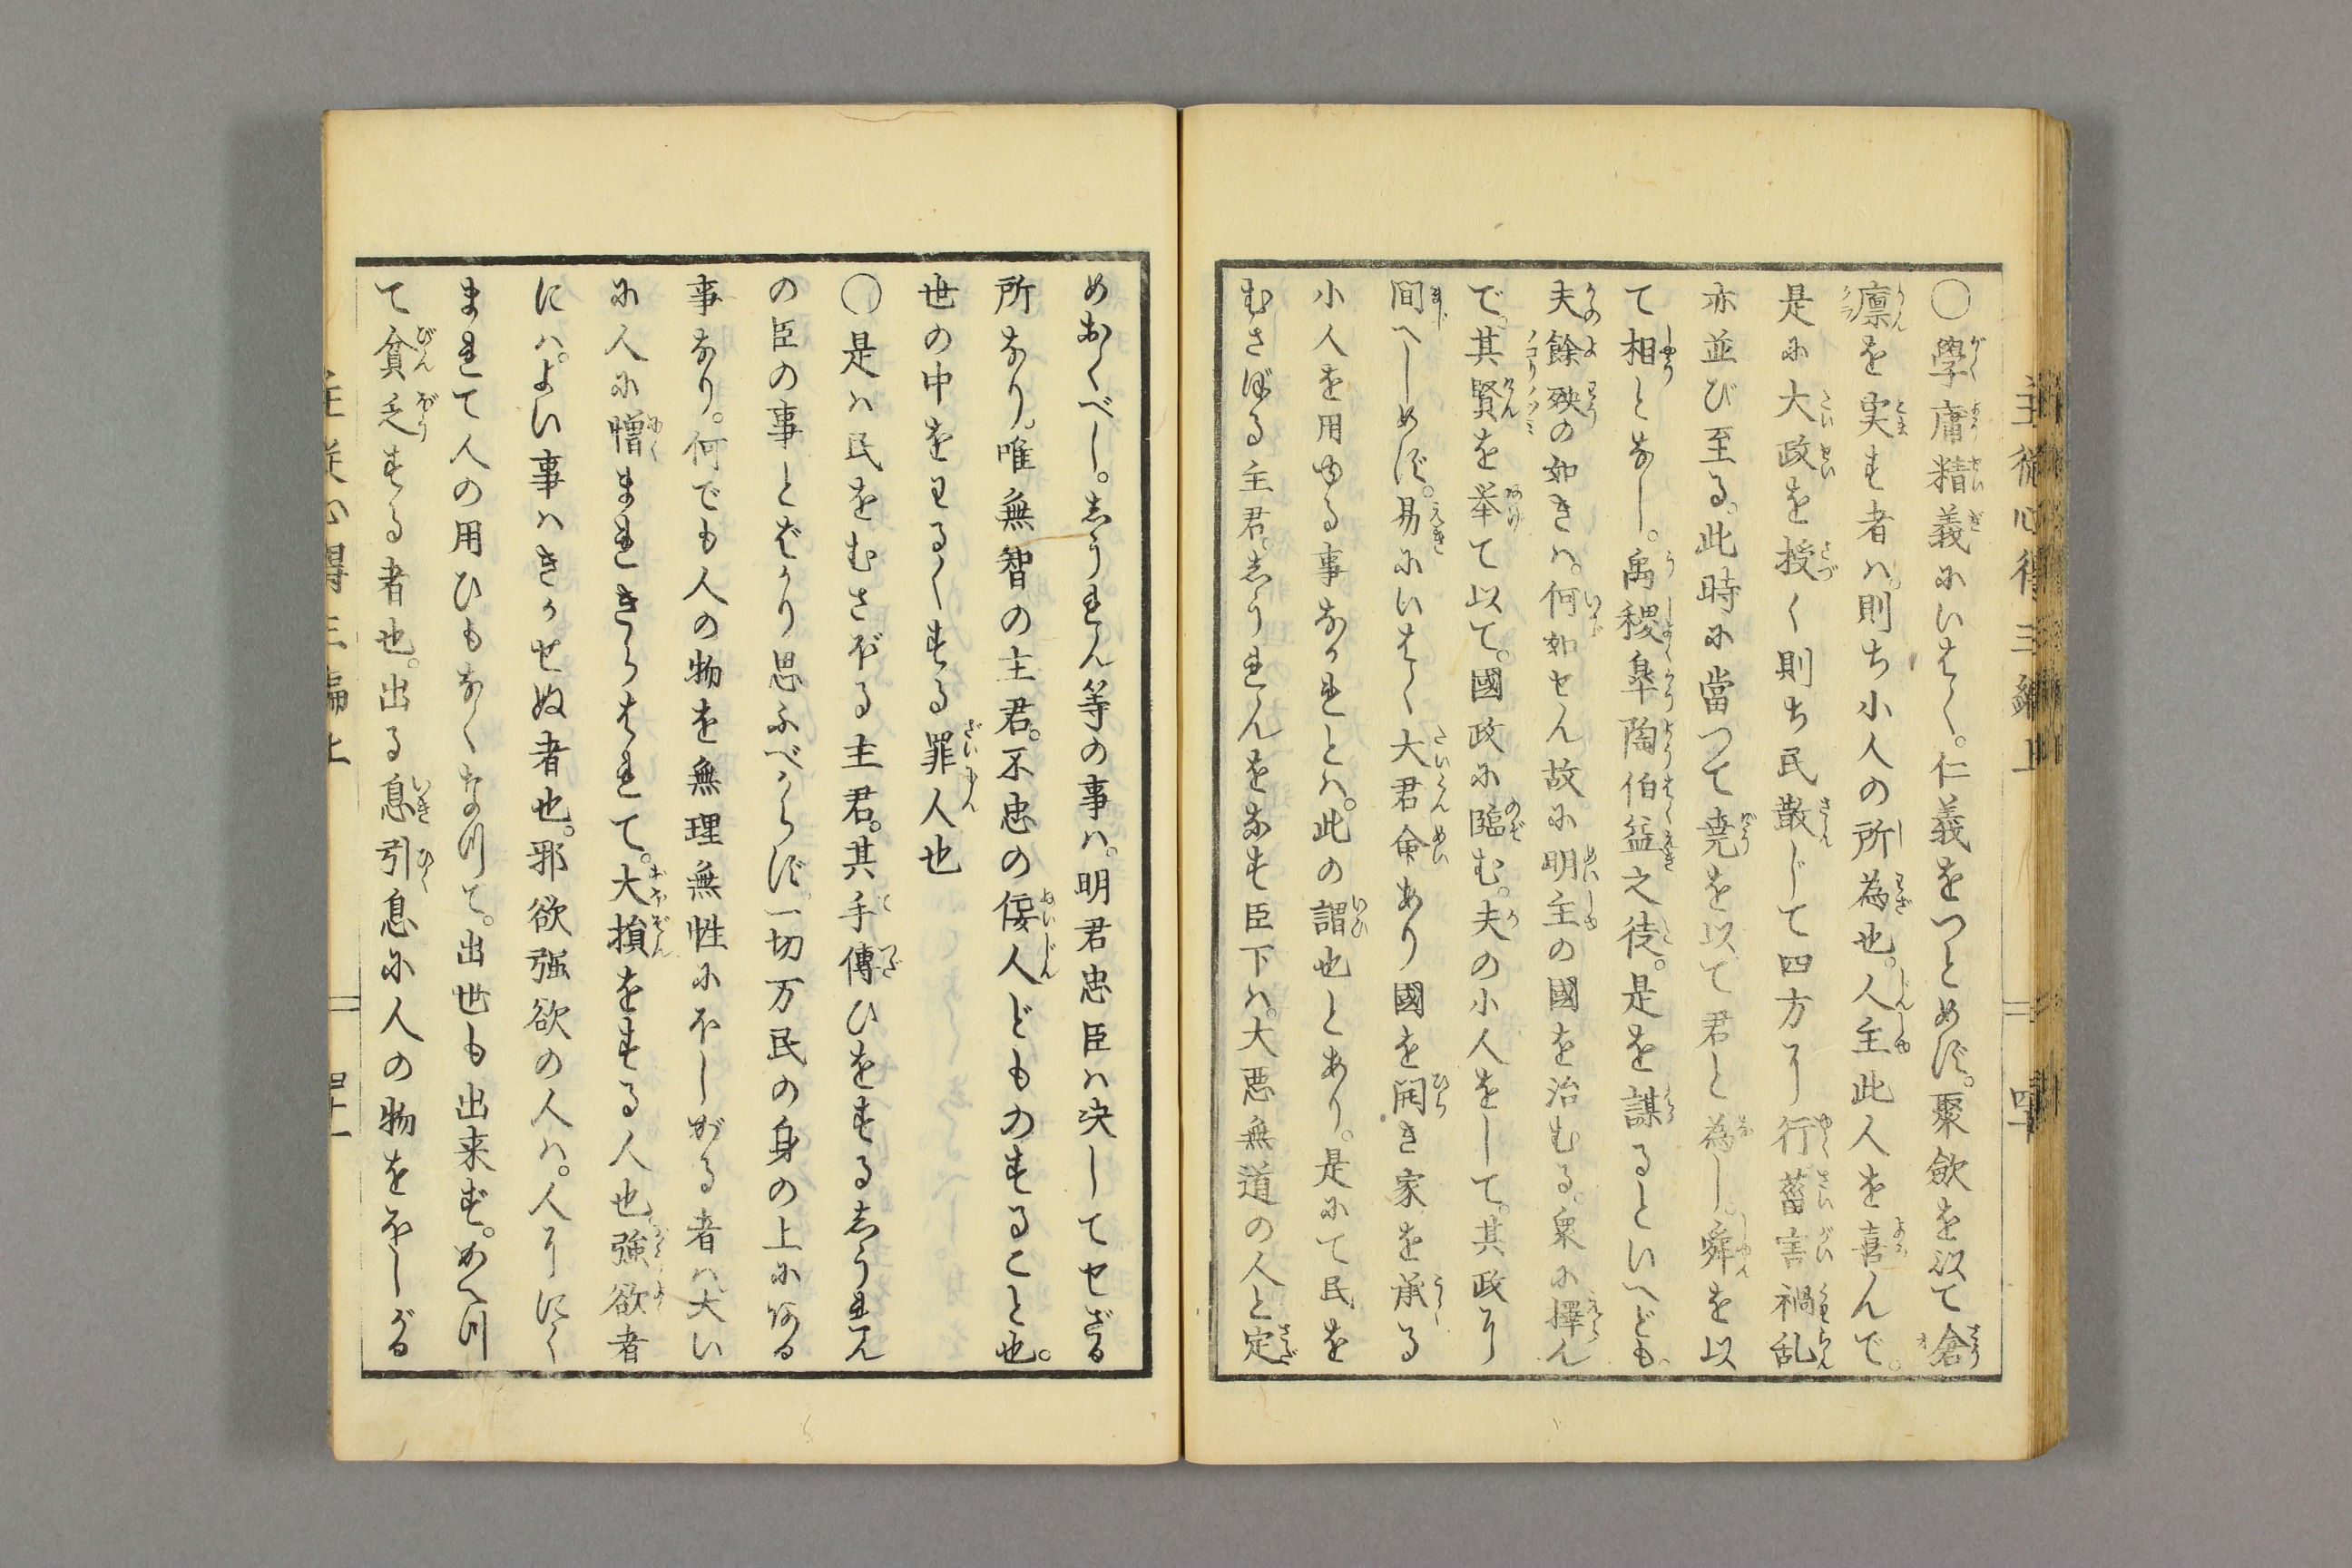 主従心得三編上 四十
〇學庸精義にいはく。仁義をつとめず。聚歛を以て倉
廪を実す者ハ。則ち小人の所為也。人主此人を喜んで。
是に大政を授く則ち民散じて四方に行蕾害禍乱
亦並び至る。此時に當つて堯を以て君と為し。舜を以
て相となし。禹稷皐陶伯益之徒。是を謀るといへども。
夫餘殃の如きハ。何如せん故に明主の國を治むる。衆に擇ん
で。其賢を挙て以て。國政に臨む。夫の小人をして。其政に
間へしめず。易にいはく大君命あり國を開き家を承る
小人を用ゆる事なかれとハ。此の謂也とあり。是にて民を
むさぼる主君。しうれんをなす臣下ハ。大悪無道の人と定
めおくべし。しうれん等の事ハ。明君忠臣ハ决してせざる
所なり。唯無智の主君。不忠の佞人どものすること也。
世の中をわるくする罪人也
〇是ハ民をむさぼる主君。其手傳ひをするしうれん
の臣の事とばかり思ふべからず一切万民の身の上に有る
事なり。何でも人の物を無理無性にほしがる者ハ大い
に人に憎まれきらはれて。大損をする人也強欲者
にハ。よい事ハきかせぬ者也。邪欲强欲の人ハ。人ににく
まれて人の用ひもなくなつて。出世も出来ず。かへつ
て貧乏する者也。出る息引息に人の物をほしがる
主従心得三編上 四十一